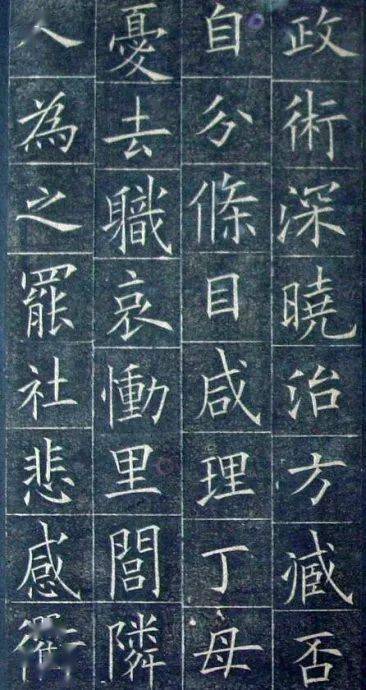 政術深曉治方臧否
自分條目咸理丁母
憂去職哀慟里閭隣
人為之罷社悲感